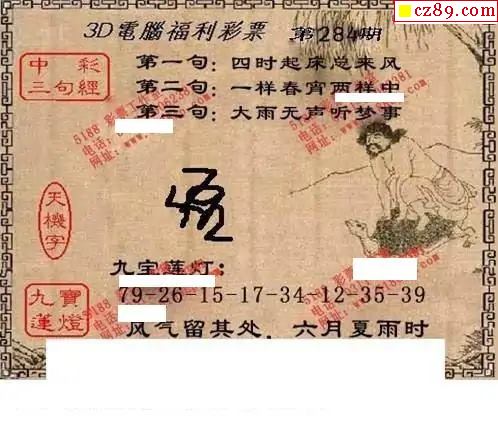 cz89.com
3D電腦福利彩票 第284期
中彩
三句經
第一句：四时起床总来风
第二句：一样春宵两样中
第三句：大雨无声听梦事
天機字
九宝莲灯：
79-26-15-17-34-12-35-39
九寶
蓮燈
风气留其处，六月夏雨时